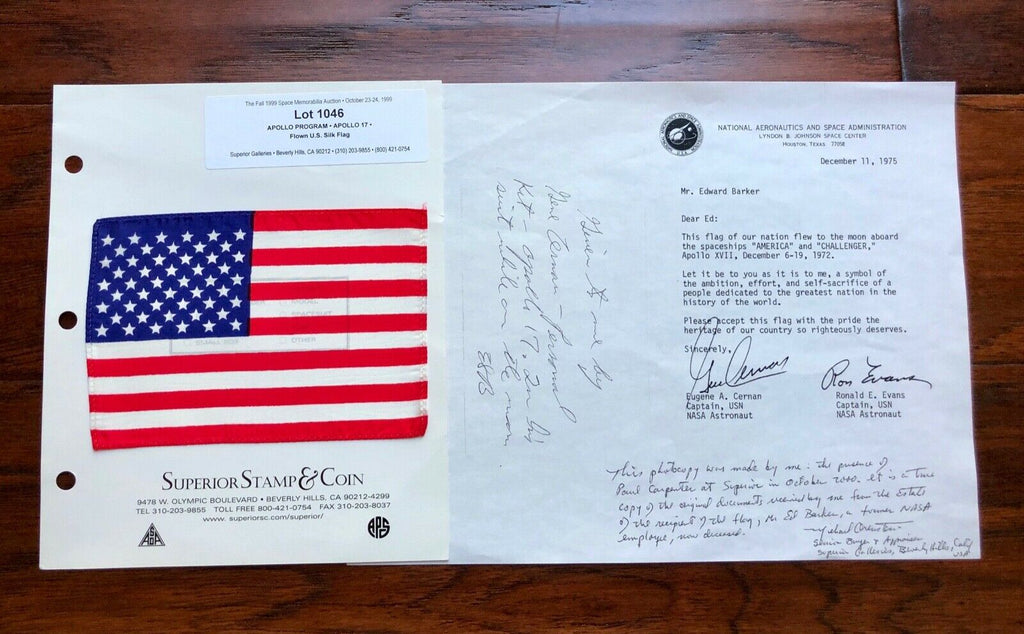 The Fall 1999 Space Memorabilia Auction • October 23-24, 1999
Lot 1046
APOLLO PROGRAM • APOLLO 17 •
Flown U.S. Silk Flag
Superior Galleries • Beverly Hills, CA 90212 • (310) 203-9855 • (800) 421-0754
MODEL
SPACESUIT
SMALL
OTHER
SUPERIOR STAMP & COIN
9478 W. OLYMPIC BOULEVARD • BEVERLY HILLS, CA 90212-4299
TEL 310-203-9855 TOLL FREE 800-421-0754 FAX 310-203-8037
www.superiorsc.com/superior/
ASDA
APS
Given to me by
Gene Cernan - Personal
Kit - Apollo 17. In his
suit while on the moon.
EBB
NATIONAL AERONAUTICS AND SPACE ADMINISTRATION
LYNDON B. JOHNSON SPACE CENTER
HOUSTON, TEXAS 77058
December 11, 1975
Mr. Edward Barker
Dear Ed:
This flag of our nation flew to the moon aboard
the spaceships "AMERICA" and "CHALLENGER,"
Apollo XVII, December 6-19, 1972.
Let it be to you as it is to me, a symbol of
the ambition, effort, and self-sacrifice of a
people dedicated to the greatest nation in the
history of the world.
Please accept this flag with the pride the
heritage of our country so righteously deserves.
Sincerely,
Gene Cernan
Ron Evans
Eugene A. Cernan
Captain, USN
NASA Astronaut
Ronald E. Evans
Captain, USN
NASA Astronaut
This photocopy was made by me in the presence of
Paul Carpenter at Superior in October 2000. It is a true
copy of the original documents received by me from the Estate
of the recipient of the flag, Mr Ed Barker, a former NASA
employee, now deceased.
Michael
Senior Buyer & Appraiser
Superior Galleries, Beverly Hills, Calif
USA